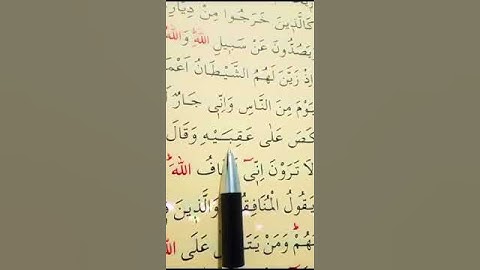 كَالَّذ۪ينَ خَرَجُوا مِنْ دِيَارِ
يَصُدُّونَ عَنْ سَب۪يلِ اللّٰهِۜ وَاللّٰهُ
اِذْ زَيَّنَ لَهُمُ الشَّيْطَانُ اَعْمَا
يَوْمَ مِنَ النَّاسِ وَاِنّ۪ي جَارٌ
كَصَ عَلٰى عَقِبَيْهِ وَقَالَ
لَا تَرَوْنَ اِنّ۪ٓي افُ اللّٰهَۜ
يَقُولُ الْمُنَافِقُ وَالَّذ۪ينَ
هُمْۜ وَمَنْ يَتَ عَلَى اللّٰ